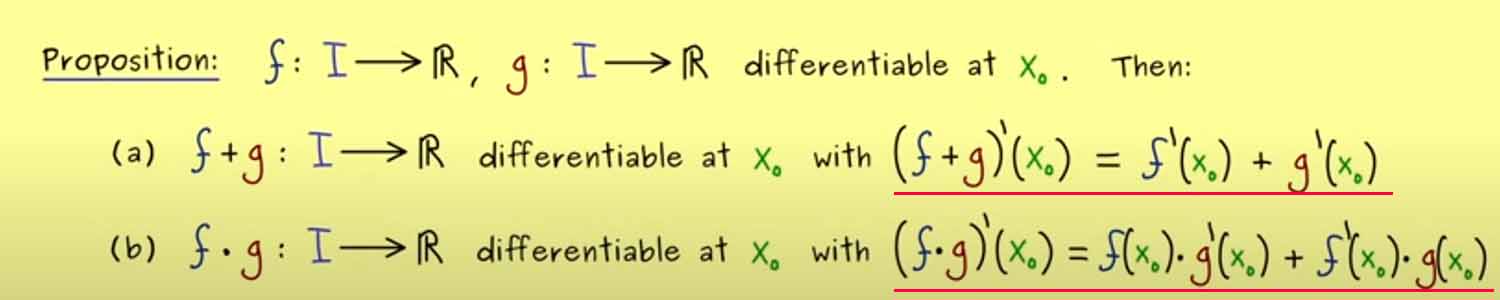 Proposition: f: I⟶ℝ, g: I⟶ℝ differentiable at x₀. Then:
(a) f+g: I⟶ℝ differentiable at x₀ with (f+g)'(x₀) = f'(x₀) + g'(x₀)
(b) f·g: I⟶ℝ differentiable at x₀ with (f·g)'(x₀) = f(x₀)·g'(x₀) + f'(x₀)·g(x₀)